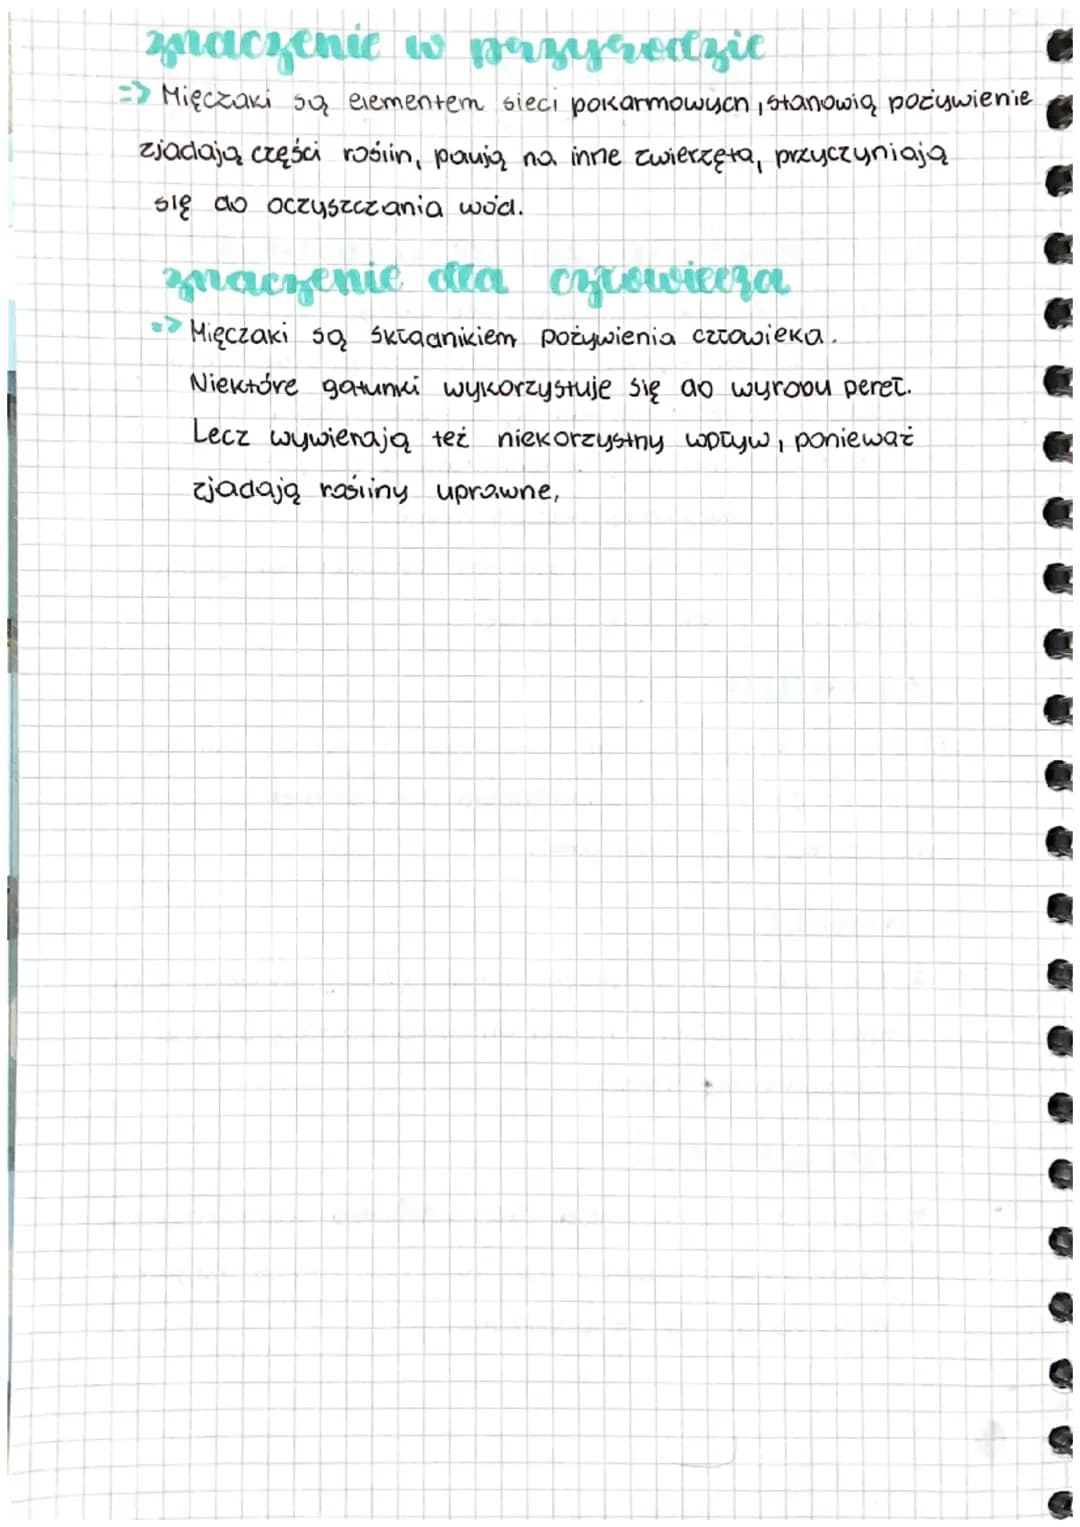 znaczenie w przyrodzie
=> Mięczaki są elementem sieci pokarmowych, stanowią pożywienie
zjadają części roślin, polują na inne zwierzęta, przyczyniają
się do oczyszczania wód.
znaczenie dla człowieka
=> Mięczaki są składnikiem pożywienia człowieka.
Niektóre gatunki wykorzystuje się do wyrobu pereł.
Lecz wywierają też niekorzystny wpływ, ponieważ
zjadają rośliny uprawne,